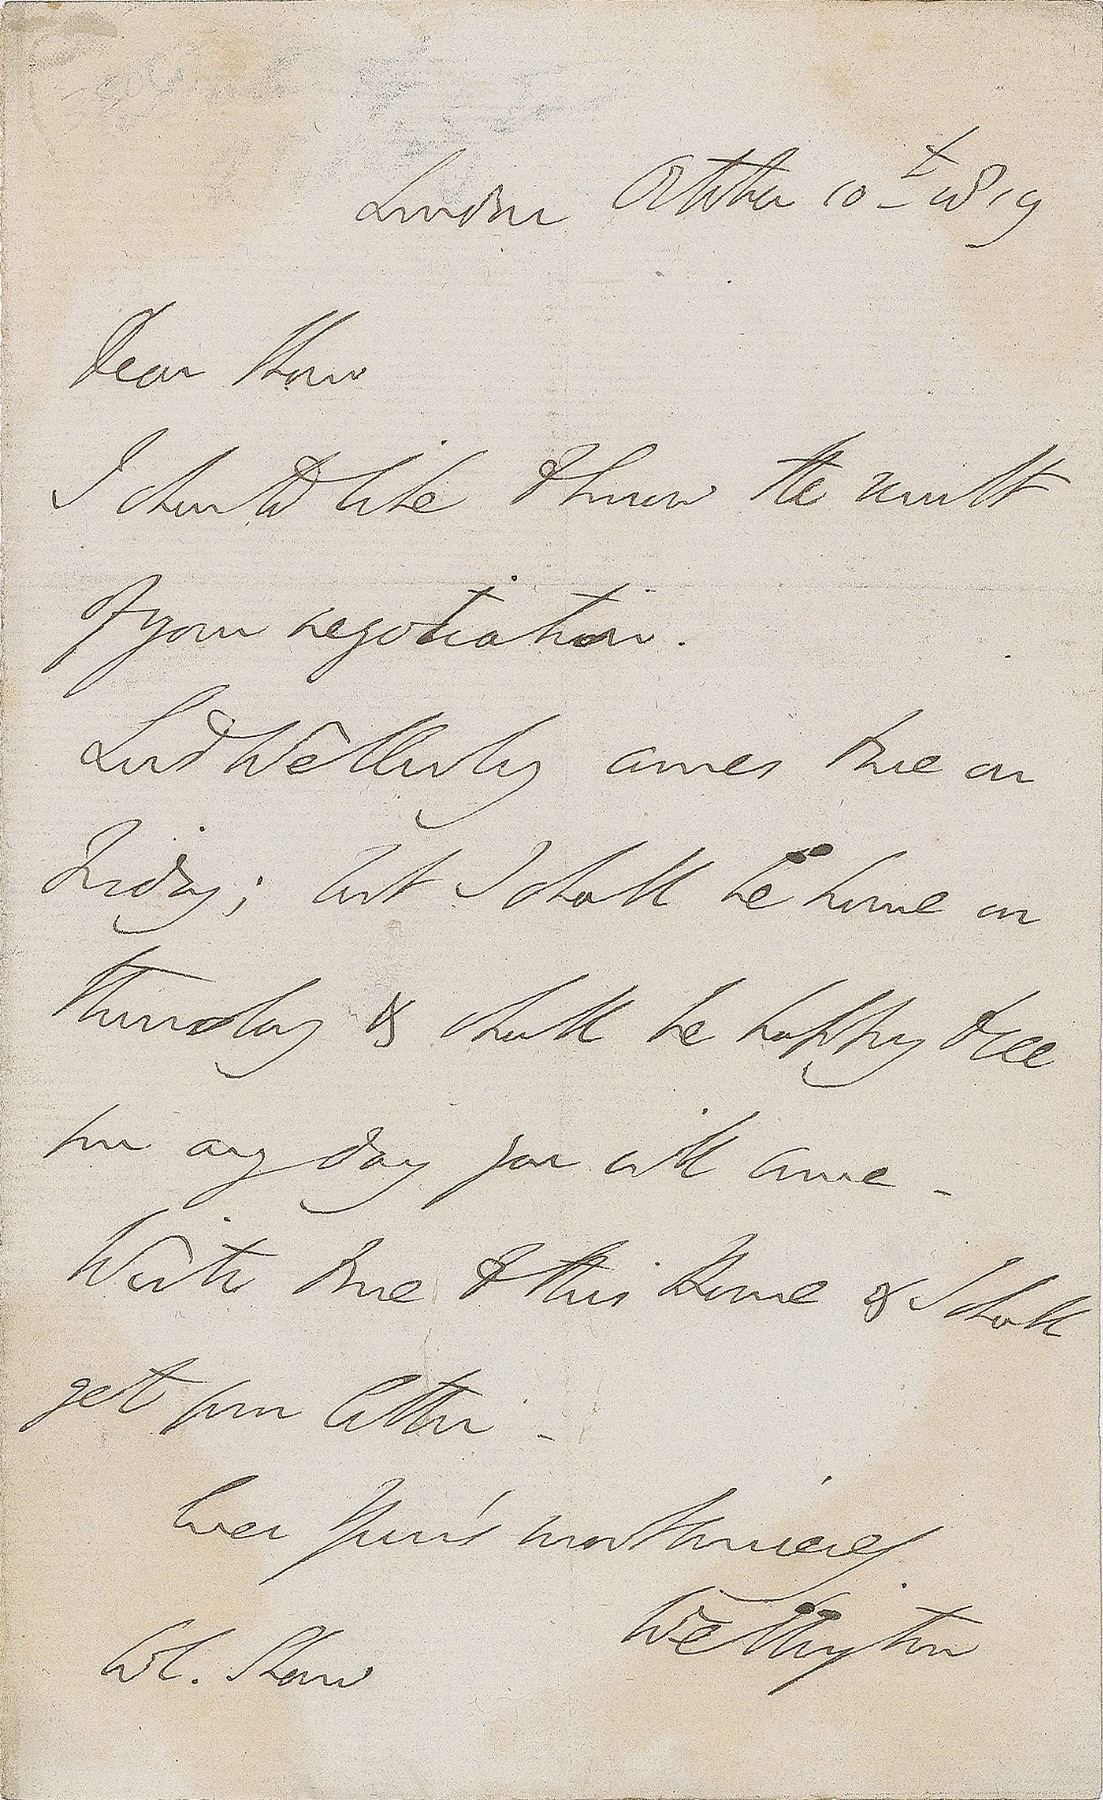 London October 10th 1819
Dear Shaw
I should like to know the result
of your negotiation.
Lord Wellesley comes here on
Friday; but I shall be home on
Thursday & shall be happy to see
you any day you will come -
Write here to this House & I shall
get your letter -
Ever Yours most sincerely
Wellington
Col. Shaw